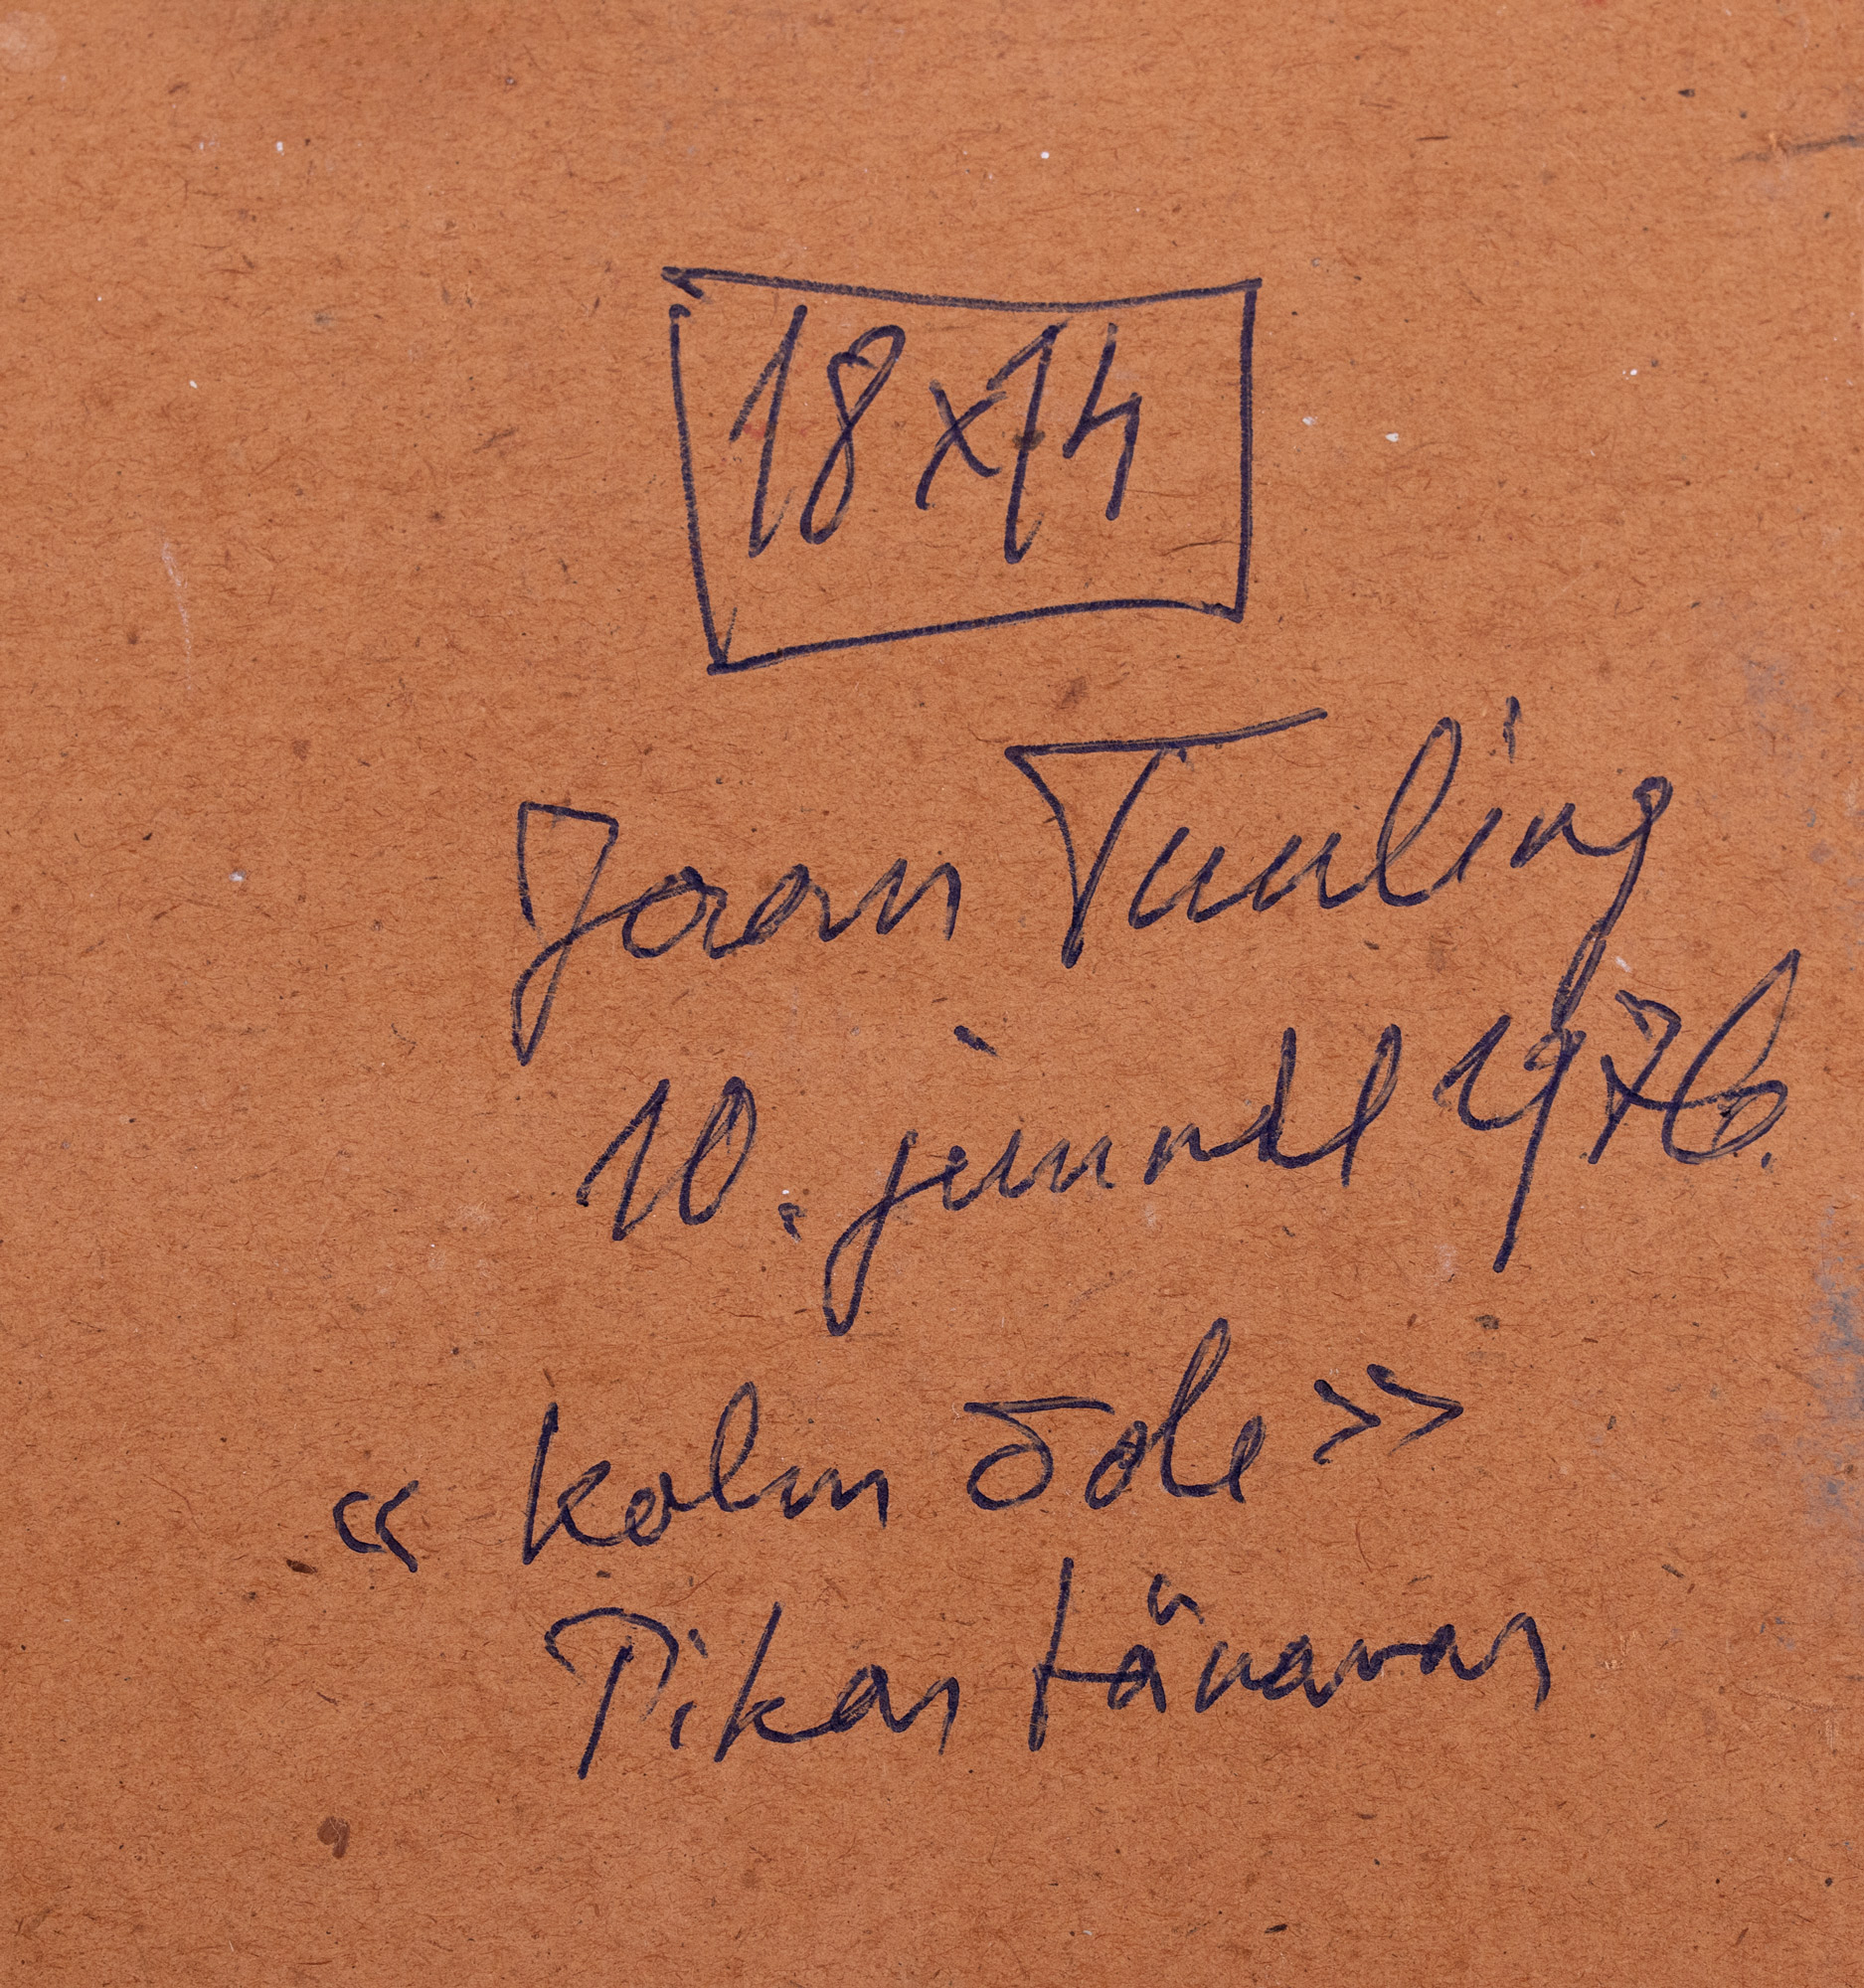 18x14
Jaan Tuuling
10. juunil 1976.
« Kolm õde »
Pikas tänavas